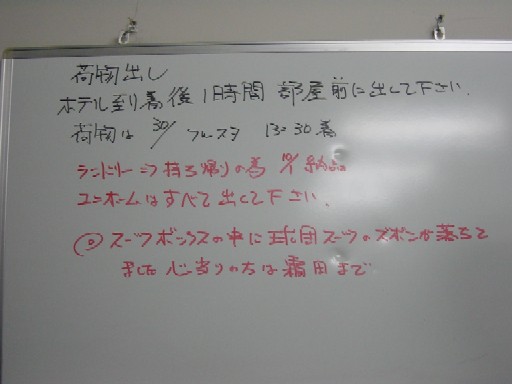 荷物出し
ホテル到着後1時間 部屋前に出して下さい.
荷物は 30/ フレスタ 13:30着
ランドリー⇒持ち帰りの為 10/1 納品
ユニホームはすべて出して下さい.
◎ スーツボックスの中に球団スーツのズボンが落ちて
ました 心当りの方は 霜田まで